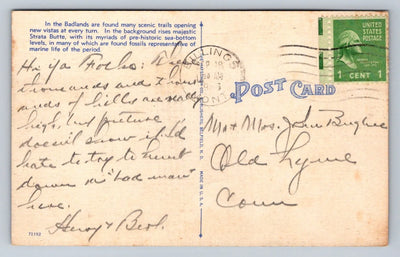 In the Badlands are found many scenic trails opening
new vistas at every turn. In the background rises majestic
Strata Butte, with its myriads of pre-historic sea-bottom
levels, in many of which are found fossils representative of
marine life of the period.
Hi Ya Folks:
thousands and thous-
ands of hills are
high. This picture
doesn't show it. I'd
hate to try to hunt
down a "bad man"
here.
Henry & Bert.
71192
BILLINGS
MONT.
UNITED STATES
POSTAGE
1 CENT 1
POST CARD
Mr & Mrs. John
Old Lyme
Conn